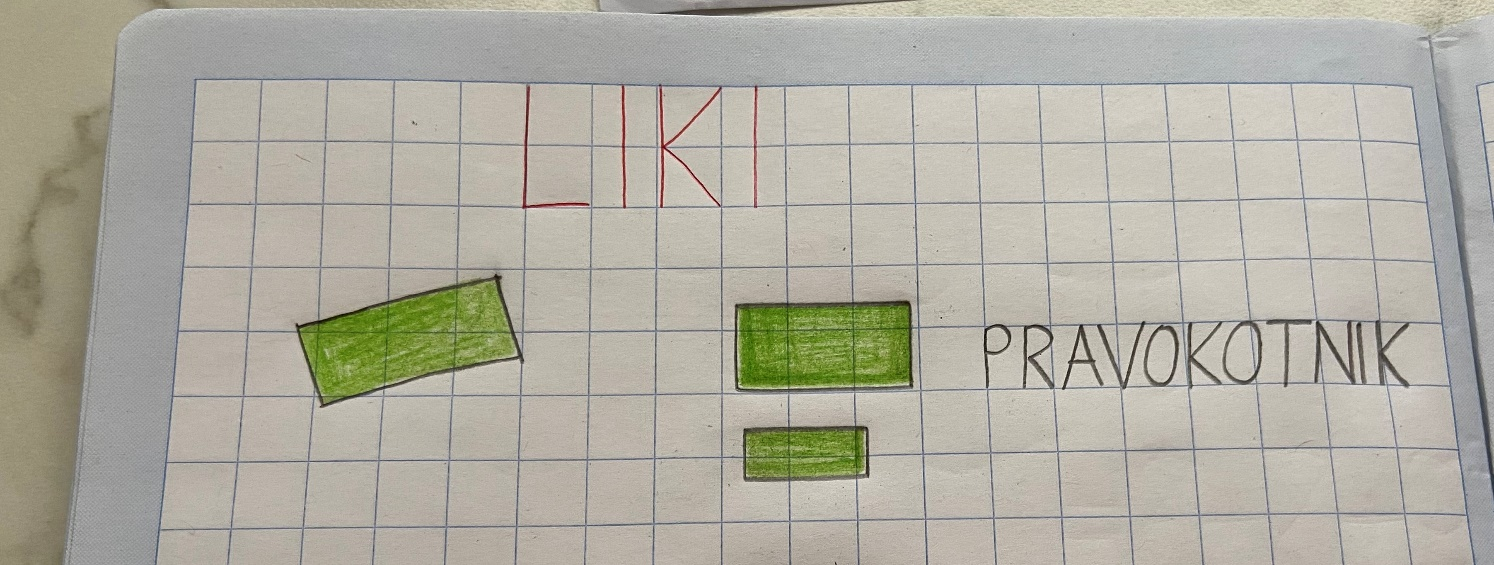 LIKI
PRAVOKOTNIK